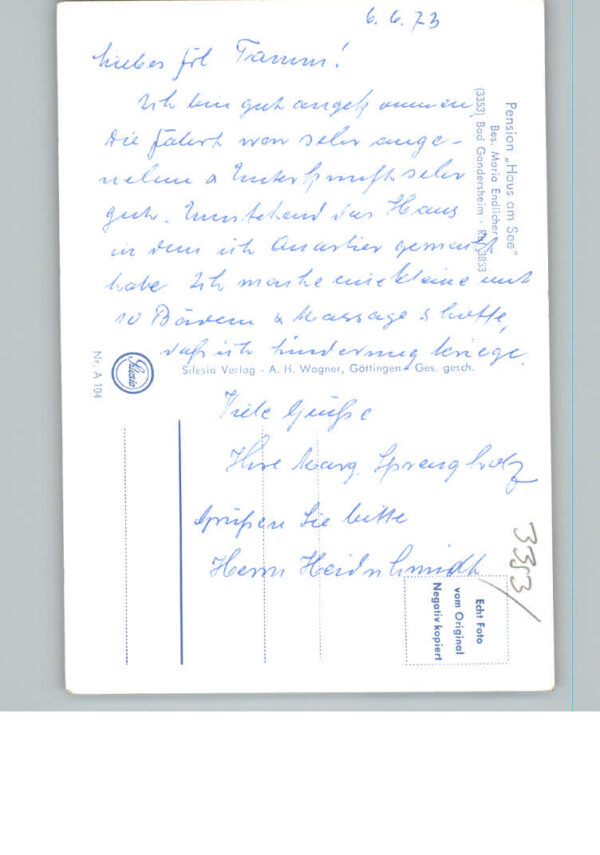 6.6.73
Liebes Frl Tamm!
Ich bin gut angekommen,
die Fahrt war sehr ange-
nehm & Unterkunft sehr
gut. Umstehend das Haus
in dem ich Quartier gemacht
habe Ich mache eine kleine mit
10 Bädern & Massage & hoffe,
daß ich Linderung kriege.
Viele Grüße
Ihre Marg. Sprengholz
Grüßen Sie bitte
Herrn Heidschmidt
Pension „Haus am See"
Bes. Maria Endlicher
(3353) Bad Gandersheim - Ruf 3853
Silesia Verlag - A. H. Wagner, Göttingen Ges. gesch.
Silesia
Nr. A 104
3353/
Echt Foto
vom Original
Negativ kopiert